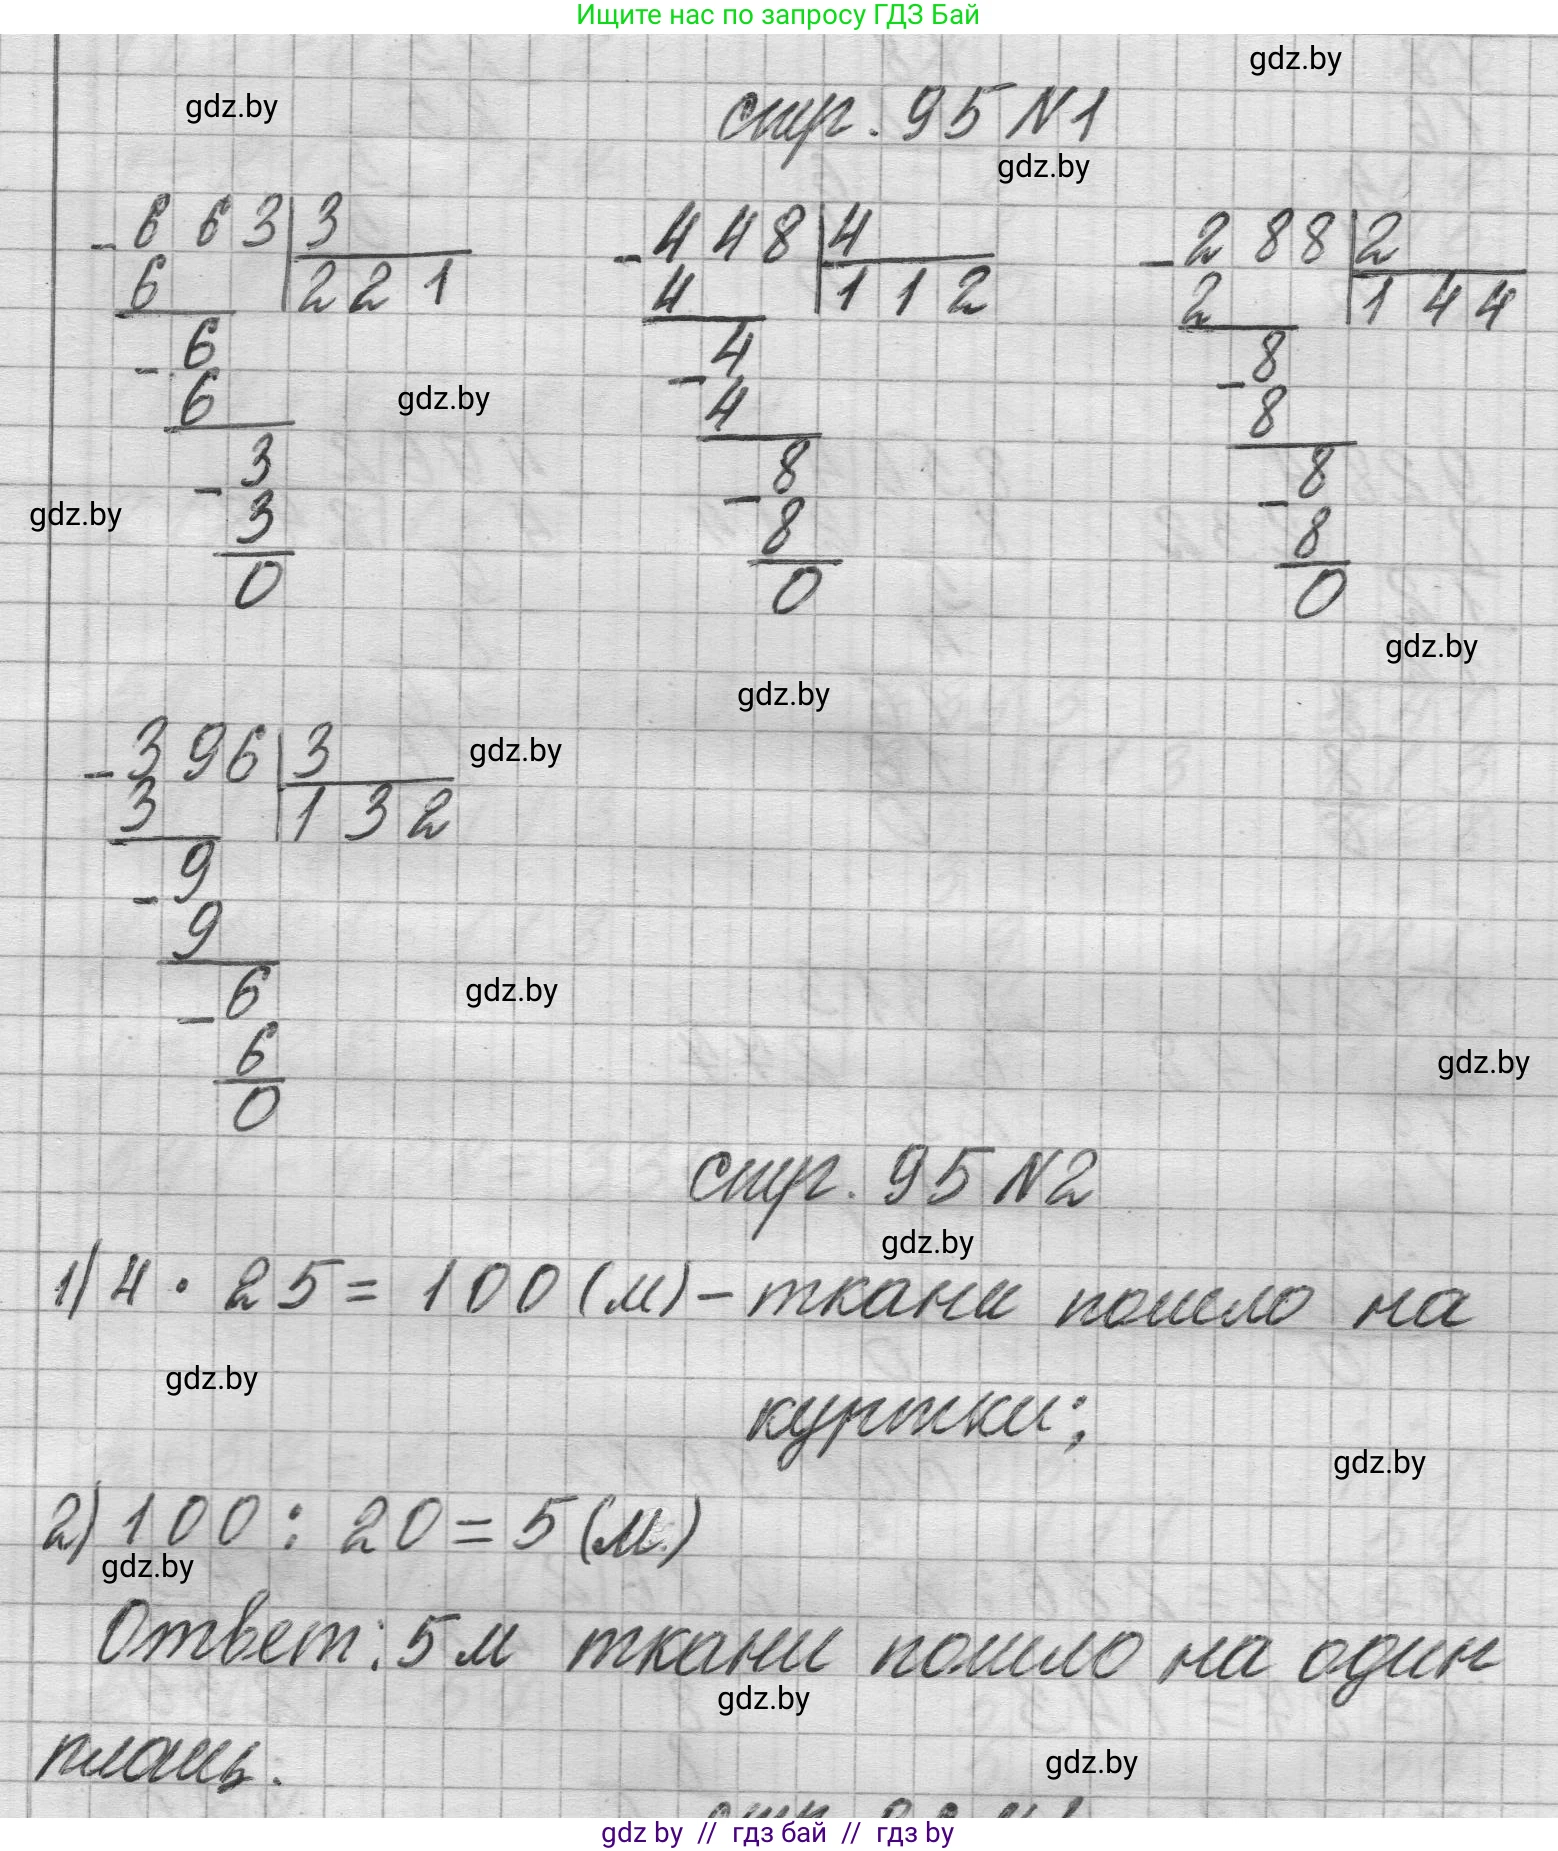 Ищите нас по запросу ГДЗ Бай
gdz.by
gdz.by
стр. 95 N1
gdz.by
- 663 | 3
6 | 221
- 6
6
- 3
3
0
- 448 | 4
4 | 112
- 4
4
- 8
8
0
- 288 | 2
2 | 144
- 8
8
- 8
8
0
gdz.by
gdz.by
gdz.by
gdz.by
- 396 | 3
3 | 132
- 9
9
- 6
6
0
gdz.by
gdz.by
gdz.by
стр. 95 N2
gdz.by
1) 4 · 25 = 100 (м) - ткани пошло на
gdz.by
куртки;
gdz.by
2) 100 : 20 = 5 (м.)
gdz.by
Ответ: 5 м ткани пошло на один
gdz.by
плащь.
gdz.by
gdz by // гдз бай // гдз by